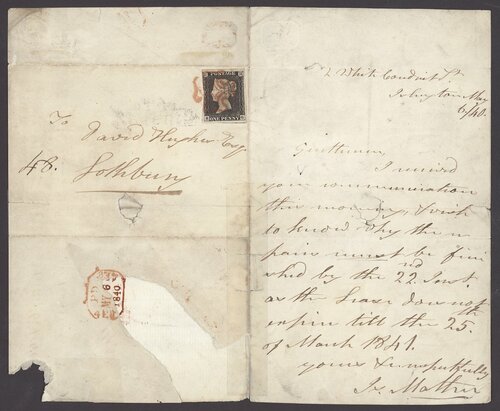 POSTAGE
ONE PENNY
To
David Hughes Esq
48.
Lothbury
PD
MY 6
1840
2 White Conduit St
Islington May
6/40.
Gentlemen,
I received
your communication
this morning, & wish
to know why the re
pairs must be fini
shed by the 22nd Inst.
as the Lease does not
expire till the 25th
of March 1841.
yours respectfully
Js Mather